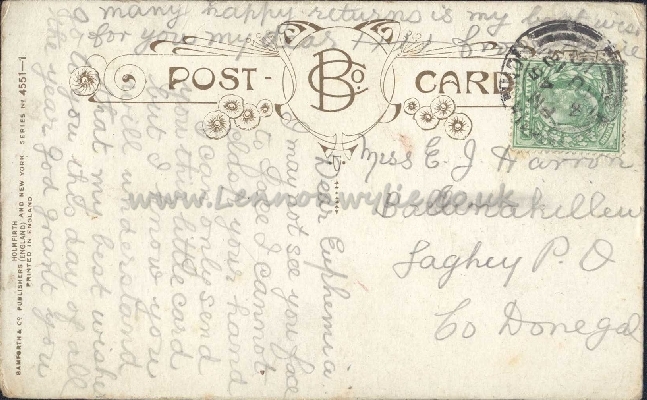 POST-CARD
B Co.
Dear Euphemia
I may not see you face
to face I cannot
hold your hand
I can only send
you this little card
But I know you
will understand
that my best wishes
go to you this day of all
the year god grant you
many happy returns is my best
for you my dear
Miss E. J. Harron
Ballinakillew
Laghey P. O
Co Donegal
BAMFORTH & CO PUBLISHERS (ENGLAND) AND NEW YORK
HOLMFIRTH
PRINTED IN ENGLAND
SERIES No 4551-1
www.Lennonwylie.co.uk